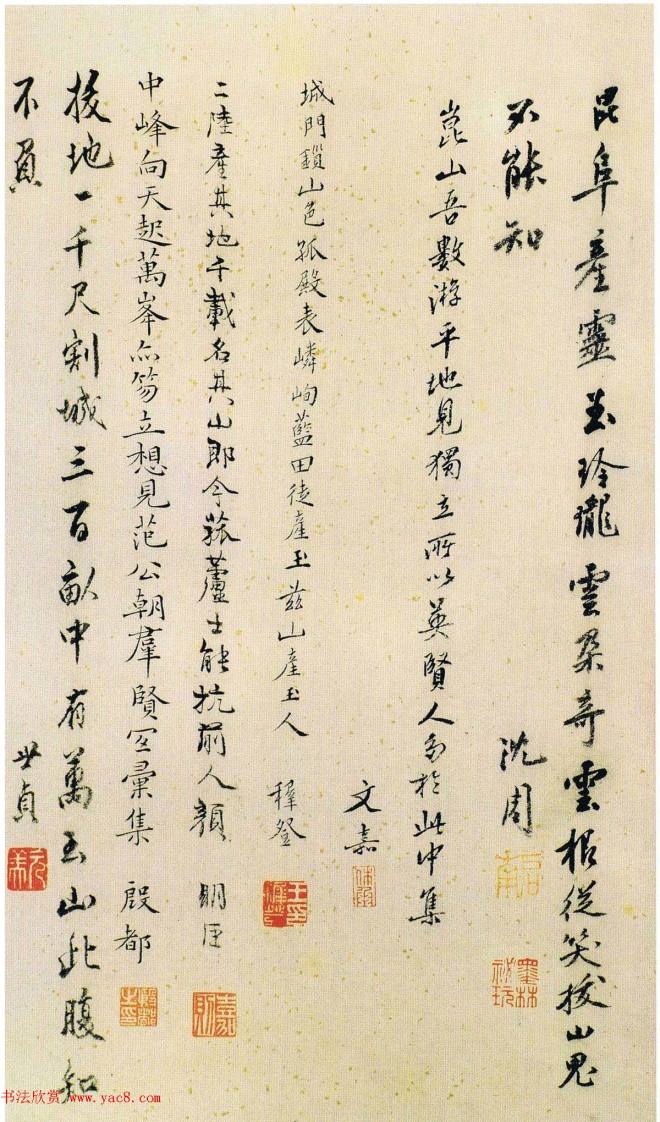 昆阜產靈玉玲瓏雲朵奇雲根從笑拔山鬼
不能知
沈周
崑山吾數游平地見獨立所以英賢人多於此中集
文嘉
城門鎖山色孤殿表嶙峋藍田徒產玉茲山產玉人
穉登
二陸產其地千載名其山即今菰蘆士能抗前人顏
明臣
中峰向天起萬峯亦笏立想見范公朝羣賢宜彙集
殷都
拔地一千尺割城三百畝中有萬玉山此腹知
不負
世貞
墨林祕玩
书法欣赏 www.yac8.com